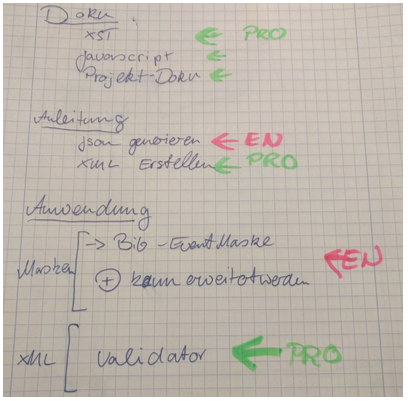 Doku
XST ← PRO
Javascript ←
Projekt-Doku ←
Anleitung
json generieren ← EN
XML Erstellen ← PRO
Anwendung
Masken [ → Bib-EventMaske
⊕ kann erweitertwerden ← EN
XML [ Validator ← PRO